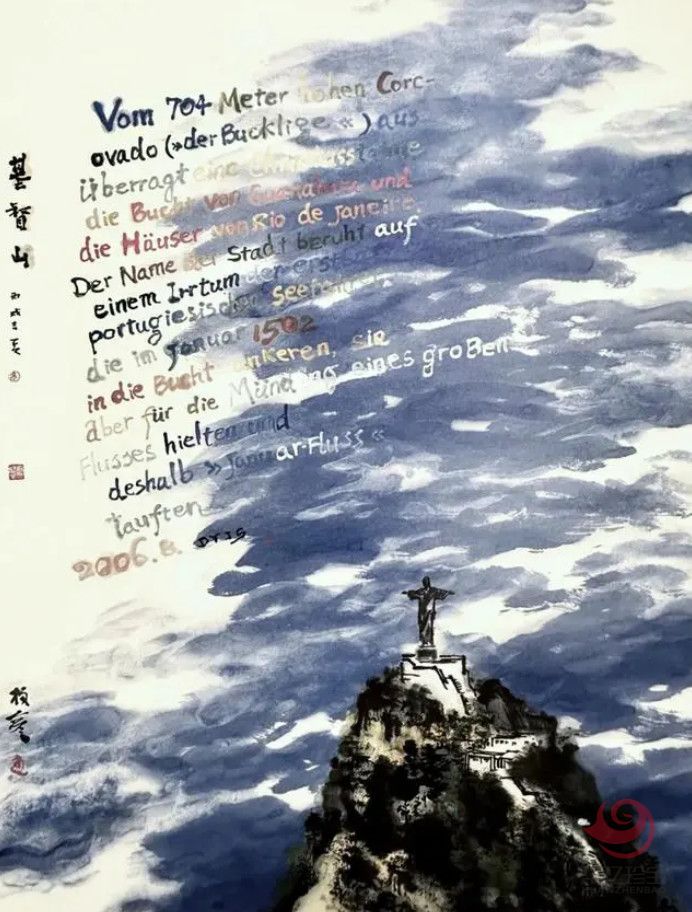 Vom 704 Meter hohen Corc-
ovado (»der Bucklige«) aus
überragt eine Christusstatue
die Bucht von Guanabara und
die Häuser von Rio de Janeiro.
Der Name der Stadt beruht auf
einem Irrtum der ersten
portugiesischen Seefahrer,
die im Januar 1502
in die Bucht ankeren, sie
aber für die Mündung eines großen
Flusses hielten und
deshalb »Januar-Fluss«
tauften
2006.8.
基督山
丙戌之夏